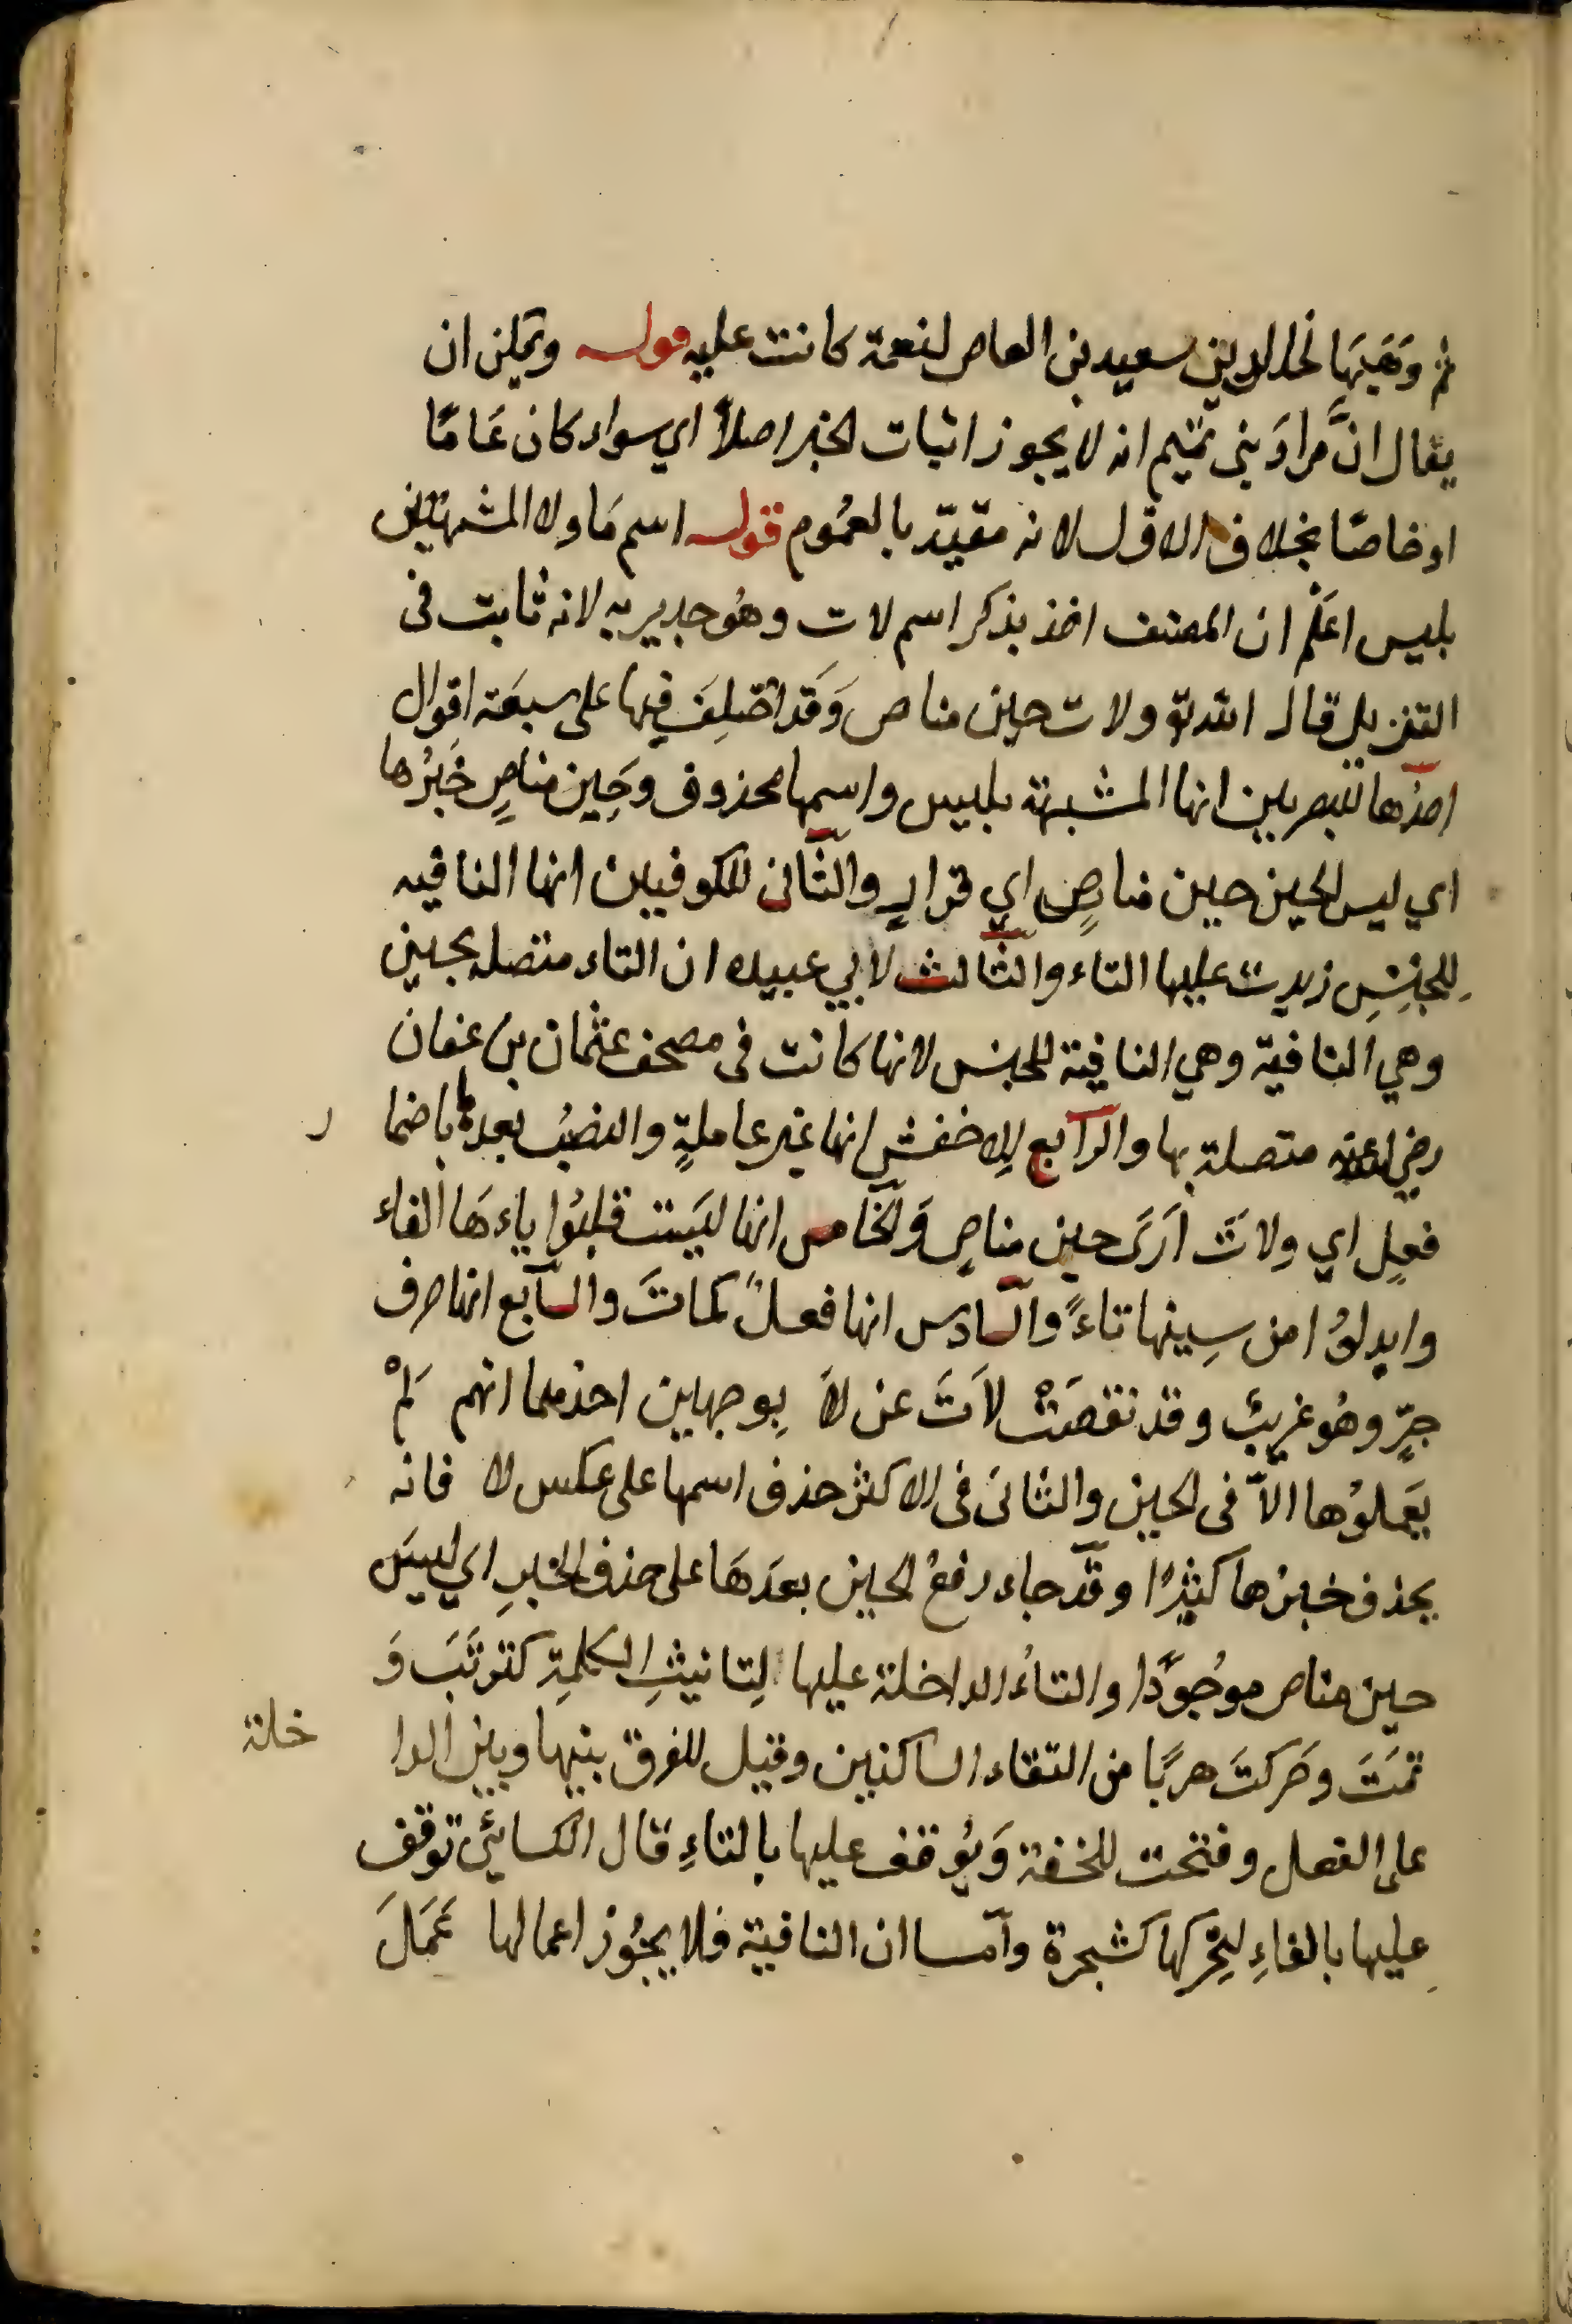 ثم وَهَبَها لخالد بن سعيد بن العاص لنعمة كانت عليه قوله ويمكن ان
يقال انَّ مرادَ بنى تميم انه لا يجوز اثبات الخبر اصلاً اي سواء كان عَامًا
او خاصًا بخلاف الاول لانه مقيّد بالعمُوم قوله اسم مَا ولا المشبهتين
بليس اعلَم ان المصنف اخذ بذكر اسم لات وهُو جدير به لانه ثابت فى
التنزيل قال الله تع ولات حين مناص وَقد اختلِفَ فيها على سبعَة اقوال
احدُها للبصريين انها المشبهة بليس واسمها محذوف وحِين مناصٍ خَبرُها
اي ليس الحين حين مناصٍ اي فرارٍ والثّانى للكوفيين انها النافيه
للجنِسِ زيدت عليها التاء والثّالث لابي عبيده ان التاء متصله بحين
وهي النافيّة وهي النافية للجنس لانها كانت فى مصحف عثمان بن عفان
رضي الله عنه متصلة بها والرّابع للاخفشِ انها غير عاملةٍ والنصبُ بعدها باضما ر
فعلٍ اي ولاتَ اَرَى حين مناصٍ وَالخامس انها ليَست قلبُوا ياءهَا الفاء
وابدلوُا من سِينها تاءً والسّادس انها فعلٌ كماتَ والسّابع انها حرف
جرٍّ وهُو غريبٌ وقد نقصَتْ لاَتَ عن لاَ بِوجهين احدهما انهم لَمْ
يعَملوُها الاّ فى الحين والثانى فى الاكثر حذف اسمها على عكس لا فانه
يحذف خبرُها كثيرًا وقد جاء رفعُ الحين بعدَهَا على حذف الخبرِ اي ليسَ
حين مناص موُجوُدًا والتاءُ الداخلة عليها لِتانيثِ الكلمِةِ كثو ثَبتَ وَ
ثمَتَ وحَركتَ هربًا من التقاء الساكنين وقيل للفرق بينها وبين الدا خلة
على الفعل وفتحت للخفة وَيُوقف عليها بالتاءِ قال الكسائيُ توقف
عليها بالهاءِ لتِحْركها كشجرة وآمّا ان النافية فلا يجُوز اعمالها عَمَلَ